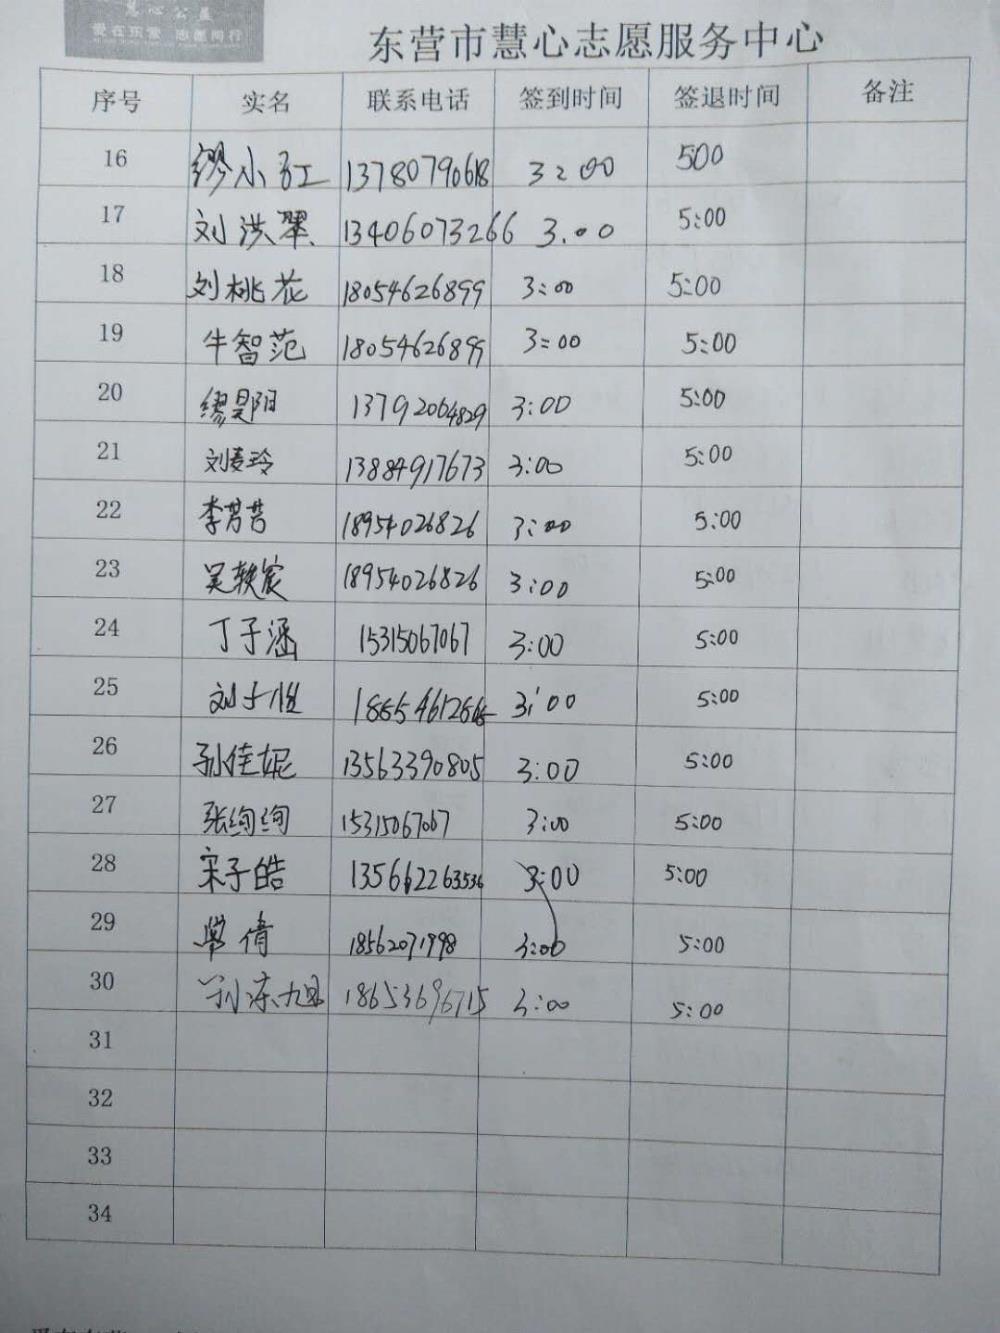 慧心公益
爱在东营 志愿同行
东营市慧心志愿服务中心
序号 实名 联系电话 签到时间 签退时间 备注
16 缪小红 13780790618 3:00 500
17 刘洪翠 13406073266 3:00 5:00
18 刘桃花 18054626899 3:00 5:00
19 牛智范 18054626899 3:00 5:00
20 缪昊阳 13792064829 3:00 5:00
21 刘麦玲 13884917673 3:00 5:00
22 李芳芳 18954026826 3:00 5:00
23 吴轶宸 18954026826 3:00 5:00
24 丁子涵 15315067067 3:00 5:00
25 刘子恒 3:00 5:00
26 孙佳妮 13563390805 3:00 5:00
27 张绚绚 15315067067 3:00 5:00
28 宋子皓 3:00 5:00
29 常倩 18562071998 3:00 5:00
30 18653696715 3:00 5:00
31
32
33
34